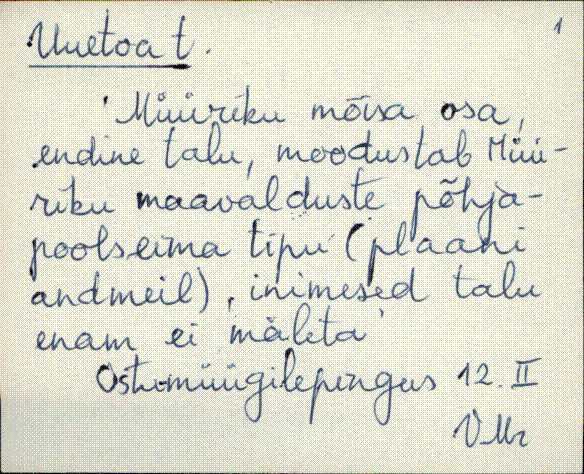 1
Uuetoa t.
'Müüriku mõisa osa,
endine talu, moodustab Müü-
riku maavalduste põhja-
poolseima tipu (plaani
andmeil), inimesed talu
enam ei mäleta'
Ostu-müügilepingus 12. II
VMr